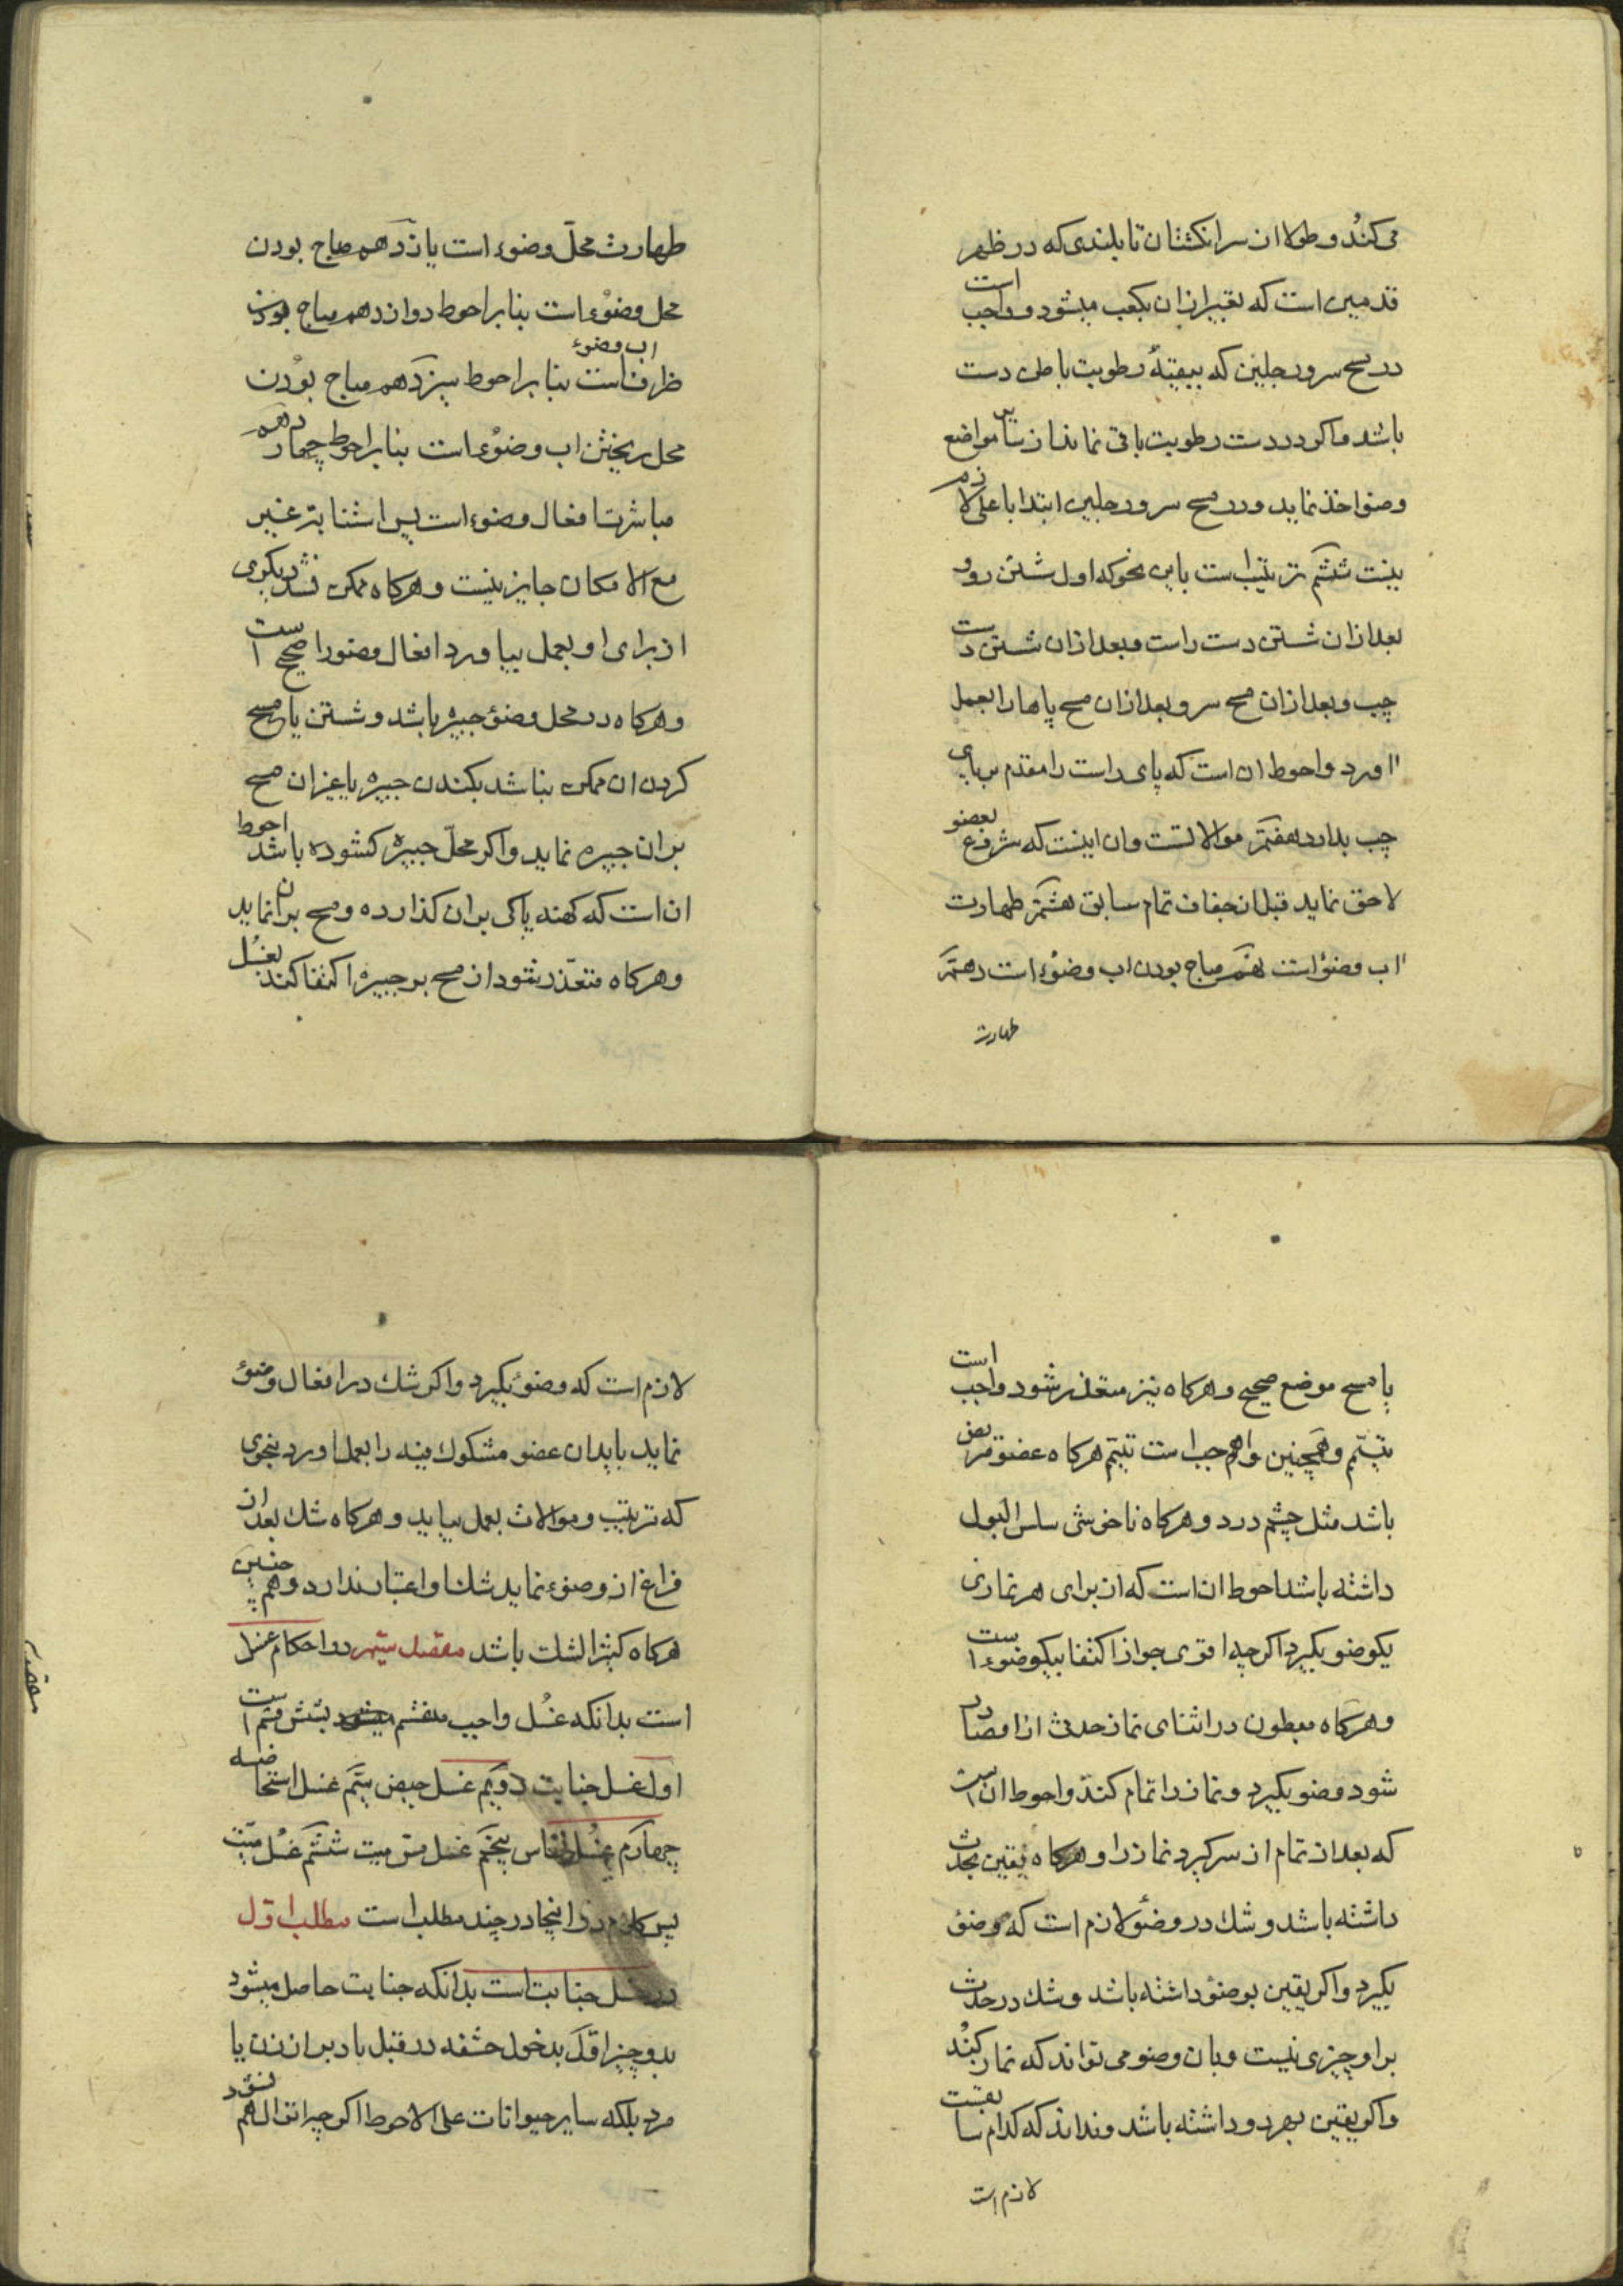 می‌کند و طولا از سر انگشتان تا بلندی که در ظهر
قدمین است که تعبیر از آن بکعب میشود و واجب است
در مسح سر و رجلین که ببقیهٔ رطوبت باطن دست
باشد و اگر در دست رطوبت باقی نماند از سایر مواضع
وضو اخذ نماید و در مسح سر و رجلین ابتدا باعلی لازم
نیست ششم ترتیب است باین نحو که اول شستن رو و
بعد از آن شستن دست راست و بعد از آن شستن دست
چپ و بعد از آن مسح سر و بعد از آن مسح پاها را بعمل
آورد و احوط آن است که پای راست را مقدم بر پای
چپ بدارد هفتم موالاتست و آن اینست که شروع بعضو
لاحق نماید قبل از جفاف تمام سابق هشتم طهارت
آب وضوء است نهم مباح بودن آب وضوء است دهم
طهارت
طهارت محلّ وضوء است یازدهم مباح بودن
محل وضوء است بنا بر احوط دوازدهم مباح بودن
ظرف آب وضوء است بنا بر احوط سیزدهم مباح بودن
محل ریختن آب وضوء است بنا بر احوط چهاردهم
مباشرت افعال وضوء است پس استنابتر غیر
مع الامکان جایز نیست و هرگاه ممکن نشد دیگری
از برای او بعمل بیاورد افعال وضو را صحیح است
و هرگاه در محل وضوء جبیره باشد و شستن یا مسح
کردن آن ممکن نباشد بکندن جبیره یا غیر آن مسح
بر آن جبیره نماید و اگر محلّ جبیره گشوده باشد احوط
آن است که کهنه پاکی بر آن گذارده و مسح بر آن نماید
و هرگاه متعذّر بشود از مسح بر جبیره اکتفا کند بغسل
یا مسح موضع صحیح و هرگاه نیز متعذر شود واجب است
تیمّم و همچنین واجب است تیمّم هرگاه عضو مریض
باشد مثل چشم درد و هرگاه ناخوشی سلس البول
داشته باشد احوط آن است که از برای هر نمازی
یکوضو بگیرد اگرچه اقوی جواز اکتفا بیکوضوء است
و هرگاه مبطون در اثنای نماز حدث از او صادر
شود وضو بگیرد و نماز را تمام کند و احوط آن است
که بعد از تمام از سر گیرد نماز را و هرگاه یقین بحدث
داشته باشد و شك در وضوء لازم است که وضوء
بگیرد و اگر یقین بوضوء داشته باشد و شك در حدث
بر او چیزی نیست و بان وضو می‌تواند که نماز بکند
و اگر یقین بهر دو داشته باشد و نداند که کدام سابقست
لازم است
لازم است که وضوء بگیرد و اگر شك در افعال وضوء
نماید باید آن عضو مشکوك فیه را بعمل آورد بنحوی
که ترتیب و موالات بعمل بیاید و هرگاه شك بعد از
فراغ از وضوء نماید شك او اعتبار ندارد و همچنین
هرگاه کثیر الشك باشد مقصد سیّم در احکام غسل
است بدانکه غسل واجب منقسم میشود بشش قسم است
اول غسل جنابت دویّم غسل حیض سیّم غسل استحاضه
چهارم غسل نفاس پنجم غسل مسّ میت ششم غسل میّت
پس کلام در اینجا در چند مطلب است مطلب اوّل
در غسل جنابت است بدانکه جنابت حاصل میشود
بدو چیز اوّل بدخول حشفه در قبل یا دبر از زن یا
مرد بلکه سایر حیوانات علی الاحوط اگرچه انزال هم نشود